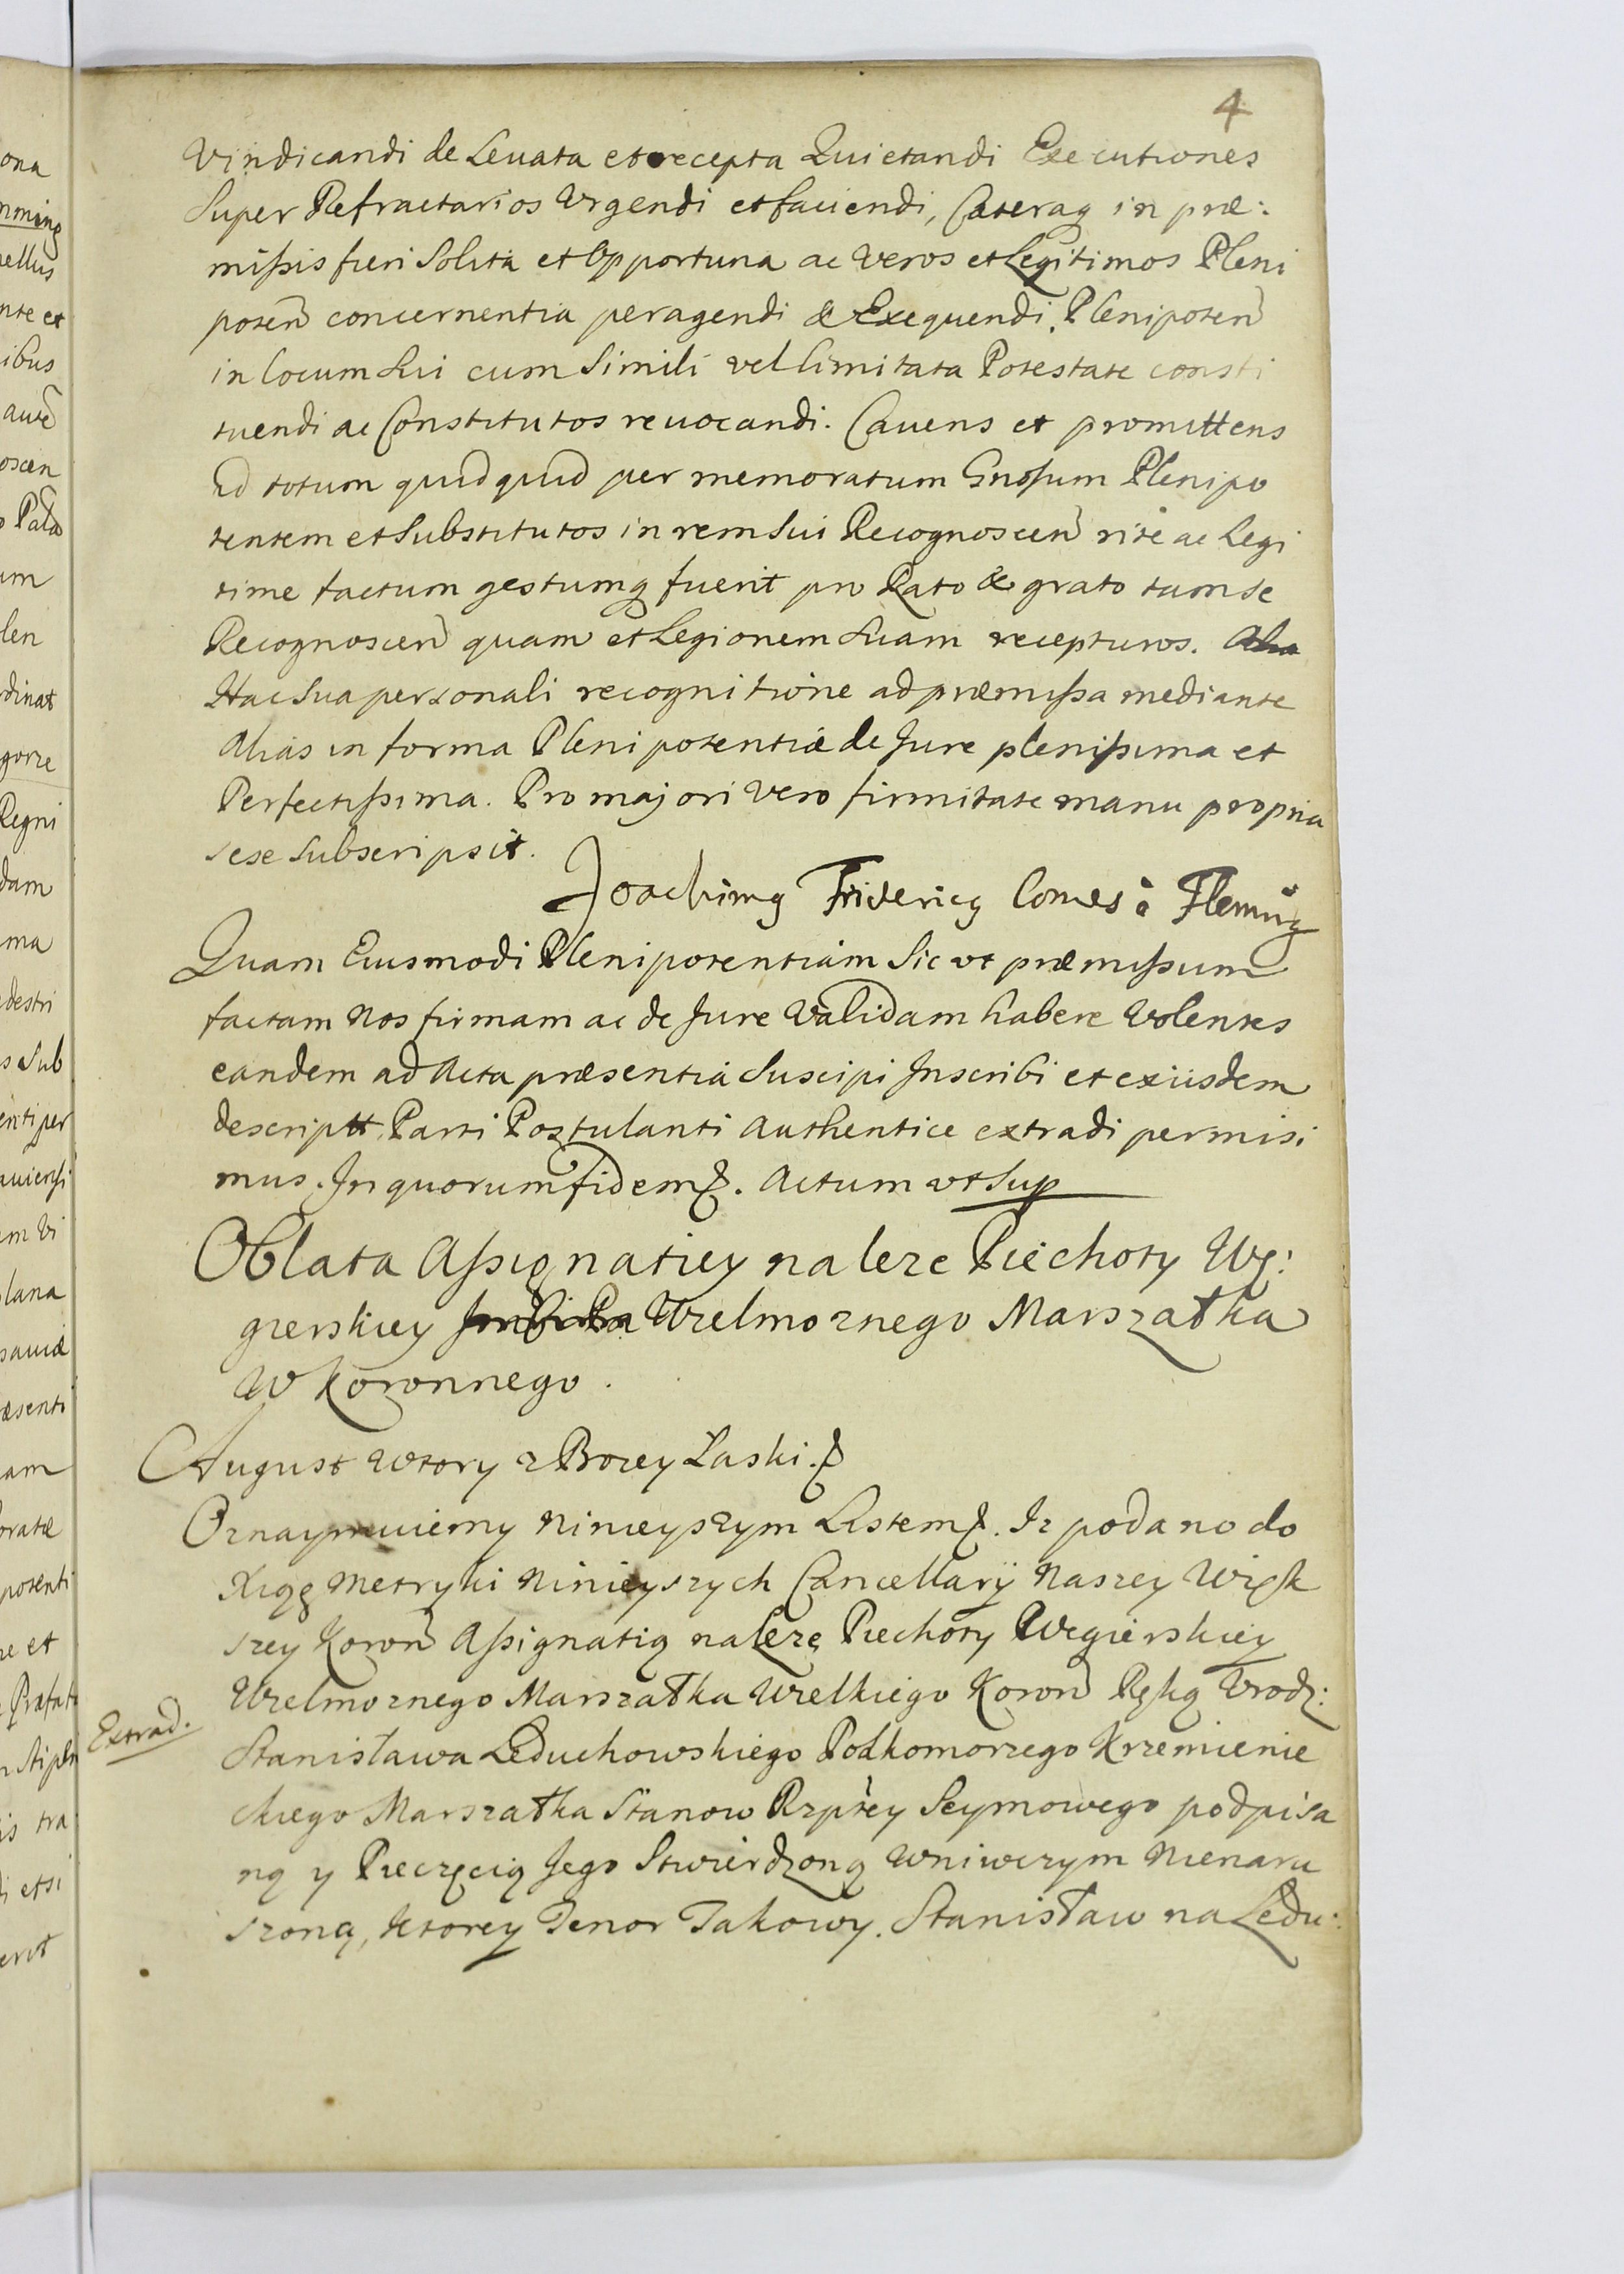 4
Vindicandi de Levata et recepta Quietandi Executiones
Super Refractarios Urgendi et faciendi, Caeteraq in prae:
missis fieri Solita et Opportuna ac Veros et Legitimos Pleni
poten concernentia peragendi & Exequendi. Plenipoten
in locum Sui cum Simili vel limitata Potestate consti
tuendi ac Constitutos revocandi. Cavens et promittens
Id totum quidquid per memoratum Gnosum Plenipo
tentem et Substitutos in rem Sui Recognoscen rite ac Legi
time factum gestumq fuerit pro Rato & grato tam se
Recognoscen quam et Legionem Suam recepturos.
Hac Sua personali recognitione ad praemissa mediante
Alias in forma Plenipotentiae de Jure plenissima et
Perfectissima. Pro majori vero firmitate manu propria
sese Subscripsit.
Joachimg Fridericg Comes à Flemīg
Quam Eiusmodi Plenipotentiam Sic ut praemissum
factam Nos firmam ac de Jure Validam habere Volentes
eandem ad Acta praesentia Suscipi Inscribi et ex iisdem
descriptt. Parti Postulanti Authentice extradi permisi
mus. In quorum fidem &. Actum ut Sup
Oblata Assignatiey na leze Piechoty Wę:
gierskiey Wielmoznego Marszałka
W Koronnego.
August Wtory z Bozey Łaski. &
Oznaymuiemy Ninieyszym Listem &. Iz podano do
Xiąg Metryki Ninieyszych Cancellaryi Naszey Więk
szey Koron Assignatią na Lezę Piechoty Węgierskiey
Wielmoznego Marszałka Wielkiego Koron Ręką Urodz:
Extrad.
Stanisława Leduchowskiego Podkomorzego Krzemienie
ckiego Marszałka Stanow Rzptey Seymowego podpisa
ną y Pieczęcią Jego Stwierdzoną Wniwczym Nienaru
szoną, Ktorey Tenor Takowy. Stanisław na Ledu: